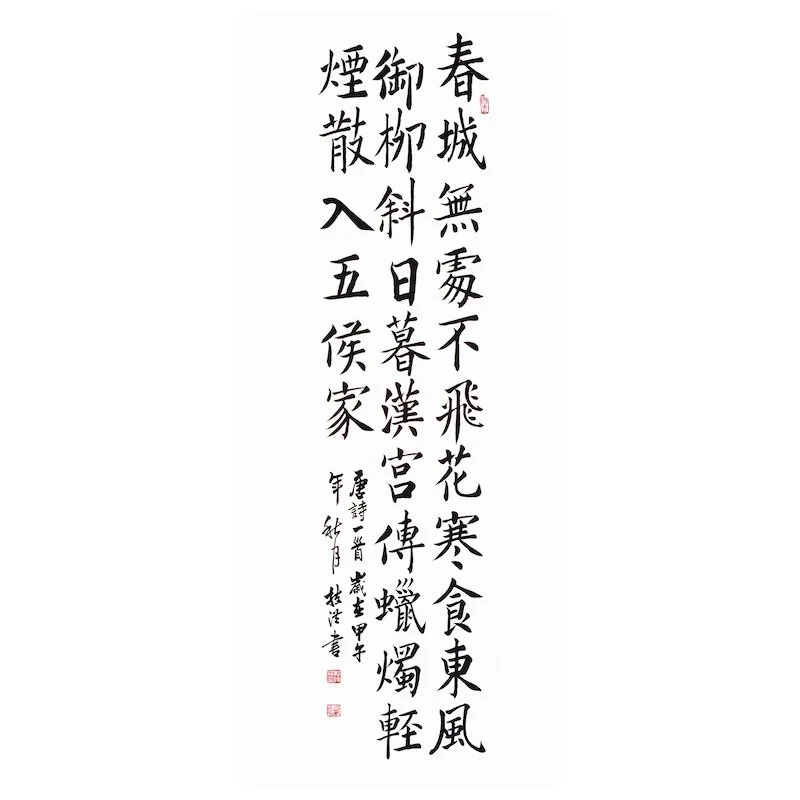 春城無處不飛花寒食東風
御柳斜日暮漢宮傳蠟燭輕
煙散入五侯家
唐詩一首歲在甲午
年秋月書